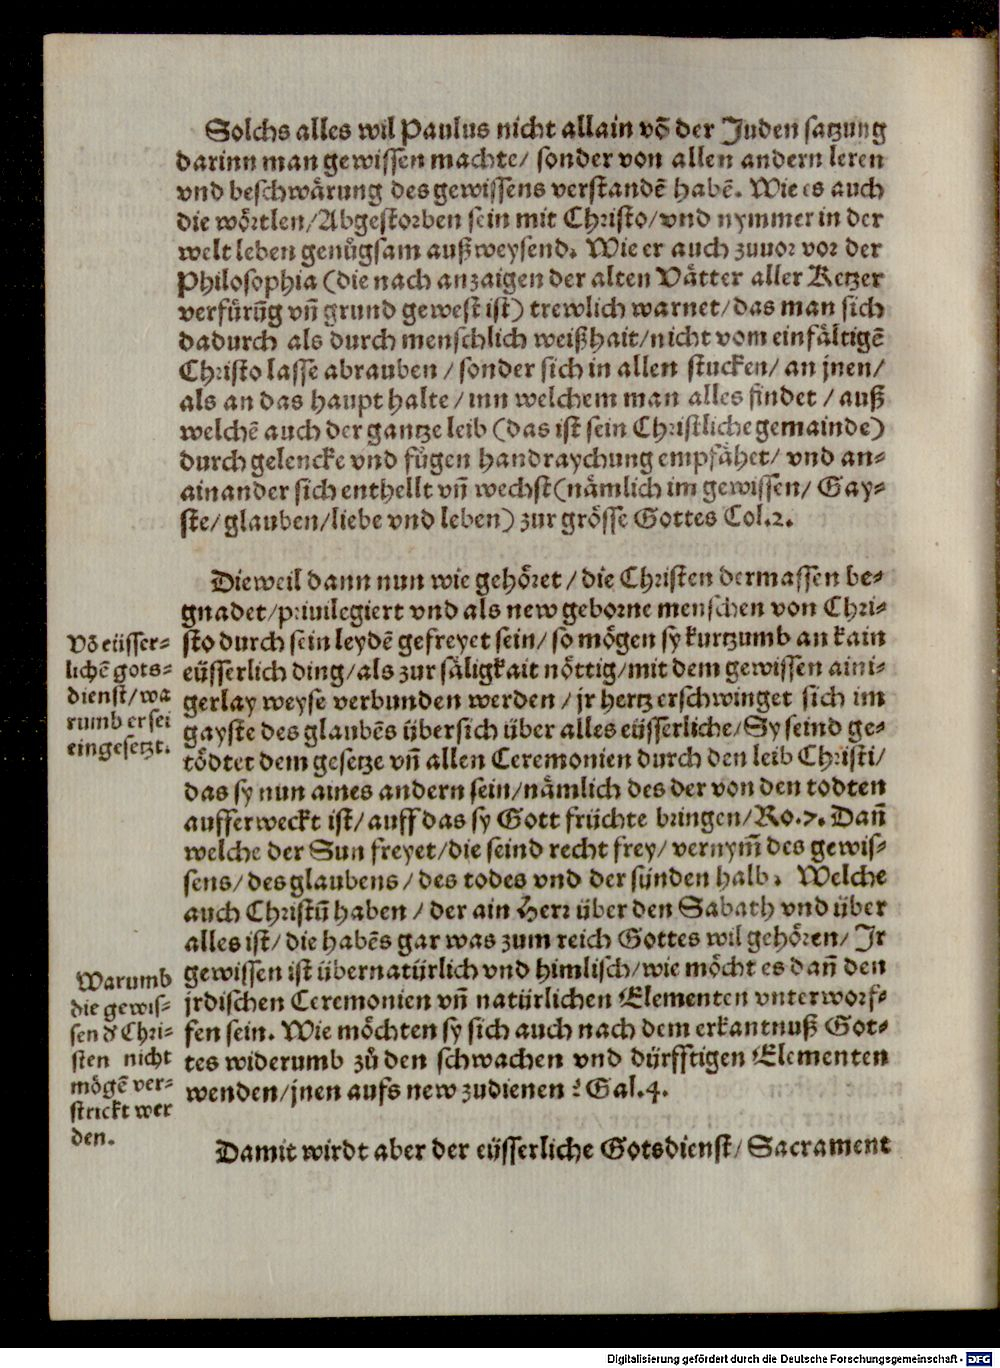 Solchs alles wil Paulus nicht allain vō der Juden satzung
darinn man gewissen machte/ sonder von allen andern leren
vnd beschwärung des gewissens verstandē habē. Wie es auch
die wörtlen/Abgestorben sein mit Christo/vnd nymmer in der
welt leben genůgsam außweysend. Wie er auch zuuor vor der
Philosophia (die nach anzaigen der alten Vätter aller Ketzer
verfürūg vn̄ grund gewest ist) trewlich warnet/das man sich
dadurch als durch menschlich weißhait/nicht vom einfältigē
Christo lasse abrauben / sonder sich in allen stucken/ an jnen/
als an das haupt halte / inn welchem man alles findet / auß
welchē auch der gantze leib (das ist sein Christliche gemainde)
durch gelencke vnd fügen handraychung empfähet/ vnd an-
ainander sich enthellt vn̄ wechst(nämlich im gewissen/ Gay-
ste/glauben/liebe vnd leben) zur grösse Gottes Col.2.
Dieweil dann nun wie gehöret / die Christen dermassen be-
gnadet/priuilegiert vnd als new geborne menschen von Chri-
sto durch sein leydē gefreyet sein/ so mögen sy kurtzumb an kain
eüsserlich ding/als zur säligkait nöttig/mit dem gewissen aini-
gerlay weyse verbunden werden / jr hertz erschwinget sich im
gayste des glaubēs übersich über alles eüsserliche/Sy seind ge-
tödtet dem gesetze vn̄ allen Ceremonien durch den leib Christi/
das sy nun aines andern sein/nämlich des der von den todten
aufferweckt ist/auff das sy Gott früchte bringen/Ro.7. Dan̄
welche der Sun freyet/die seind recht frey/ vernym̄ des gewis-
sens/des glaubens/des todes vnd der sünden halb. Welche
auch Christū haben / der ain Herr über den Sabath vnd über
alles ist/die habēs gar was zum reich Gottes wil gehören/ Jr
gewissen ist übernatürlich vnd himlisch/wie möcht es dan̄ den
jrdischen Ceremonien vn̄ natürlichen Elementen vnterworf-
fen sein. Wie möchten sy sich auch nach dem erkantnuß Got-
tes widerumb zů den schwachen vnd dürfftigen Elementen
wenden/jnen aufs new zudienen ? Gal.4.
Vō eüsser-
lichē gots-
dienst/wa
rumb er sei
eingesetzt.
Warumb
die gewis-
sen d' Chri-
sten nicht
mögē ver-
strickt wer
den.
Damit wirdt aber der eüsserliche Gotsdienst/Sacrament
Digitalisierung gefördert durch die Deutsche Forschungsgemeinschaft - DFG